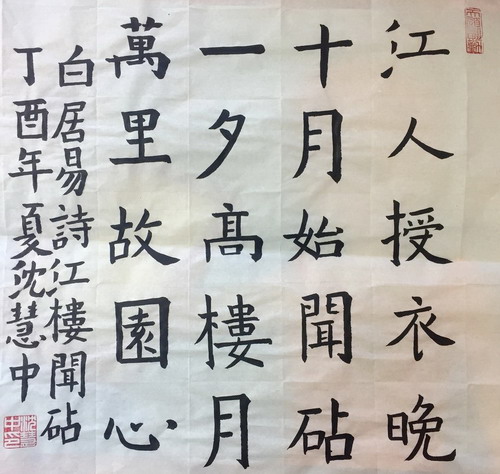 江人授衣晚
十月始聞砧
一夕高樓月
萬里故園心
白居易詩江樓聞砧
丁酉年夏沈慧中